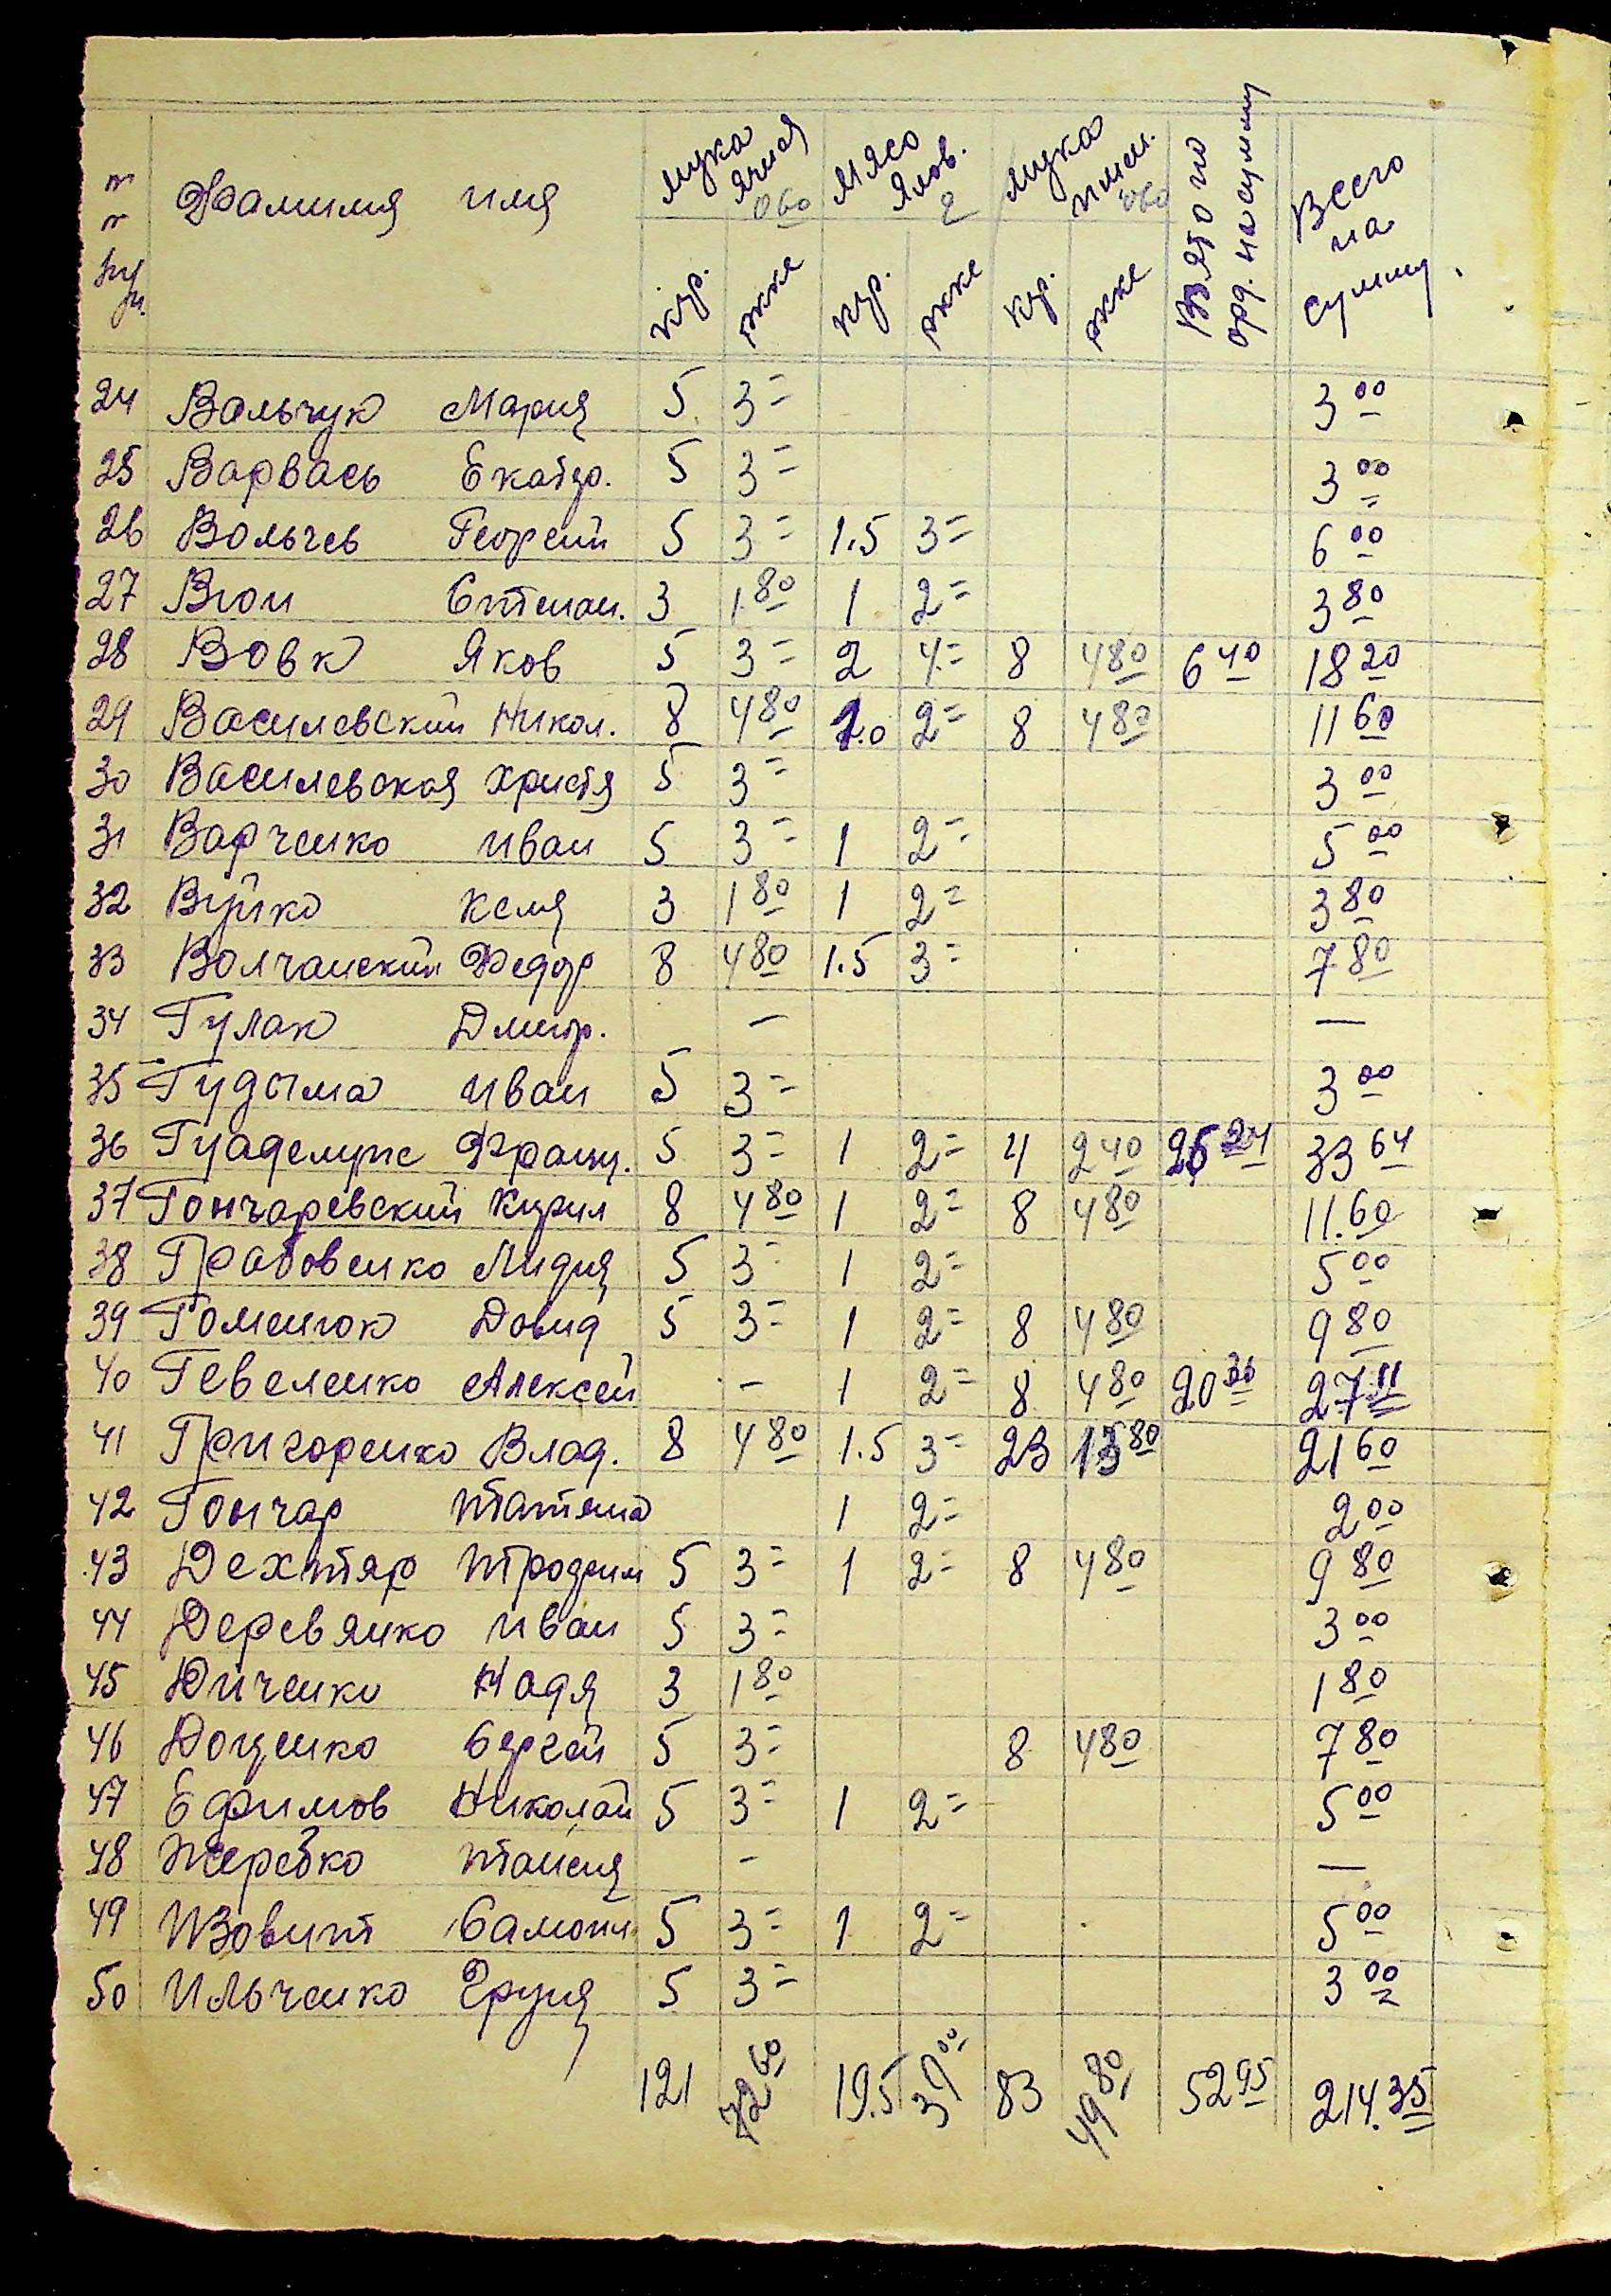 № Фамилия имя мука ячмен мясо ялов. мука пшен. Взято по орд. на сумму Всего на сумму.
060 2 060
кгр. ркке кгр. ркке кгр. ркке
24 Вальчук Мария 5 3= 3 00
25 Варвась Екатер. 5 3= 3 00
26 Вольчев Георгий 5 3= 1.5 3= 6 00
27 Вюн Степан. 3 1 80 1 2= 3 80
28 Вовк Яков 5 3= 2 4= 8 4 80 6 40 18 20
29 Василевский Никол. 8 4 80 1.0 2= 8 4 80 11 60
30 Василевская Христя 5 3= 3 00
31 Варченко Иван 5 3= 1 2= 5 00
32 Вуйко Ксеня 3 1 80 1 2= 3 80
33 Волчанский Федор 8 4 80 1.5 3= 7 80
34 Гулак Дмитр. — —
35 Гудыма Иван 5 3= 3 00
36 Гуаделупе Франц. 5 3= 1 2= 4 2 40 26 24 33 64
37 Гончаревский Кирил 8 4 80 1 2= 8 4 80 11.60
38 Грабовенко Лидия 5 3= 1 2= 5 00
39 Гоменюк Давид 5 3= 1 2= 8 4 80 9 80
40 Гевеленко Алексей – 1 2= 8 4 80 20 31 27 11
41 Григоренко Влад. 8 4 80 1.5 3= 23 13 80 21 60
42 Гончар Татяна 1 2= 2 00
43 Дехтяр Трофим 5 3= 1 2= 8 4 80 9 80
44 Деревянко Иван 5 3= 3 00
45 Диченко Надя 3 1 80 1 80
46 Доценко Сергей 5 3= 8 4 80 7 80
47 Ефимов Николай 5 3= 1 2= 5 00
48 Жеребко Таисия – —
49 Изовит Самоил 5 3= 1 2= 5 00
50 Ильченко Груня 5 3= 3 00
121 72 60 19.5 39 00 83 49 80 52 95 214.35